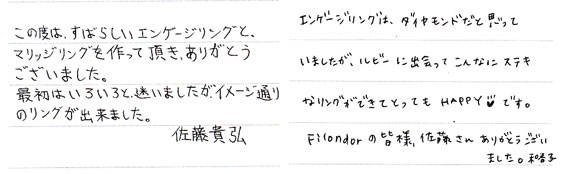 この度は、すばらしいエンゲージリングと、
マリッジリングを作って頂き、ありがとう
ございました。
最初はいろいろと、迷いましたがイメージ通り
のリングが出来ました。
佐藤貴弘
エンゲージリングは、ダイヤモンドだと思って
いましたが、ルビーに出会ってこんなにステキ
なリングができてとってもHAPPY♥です。
Filondorの皆様、佐藤さんありがとうござい
ました。